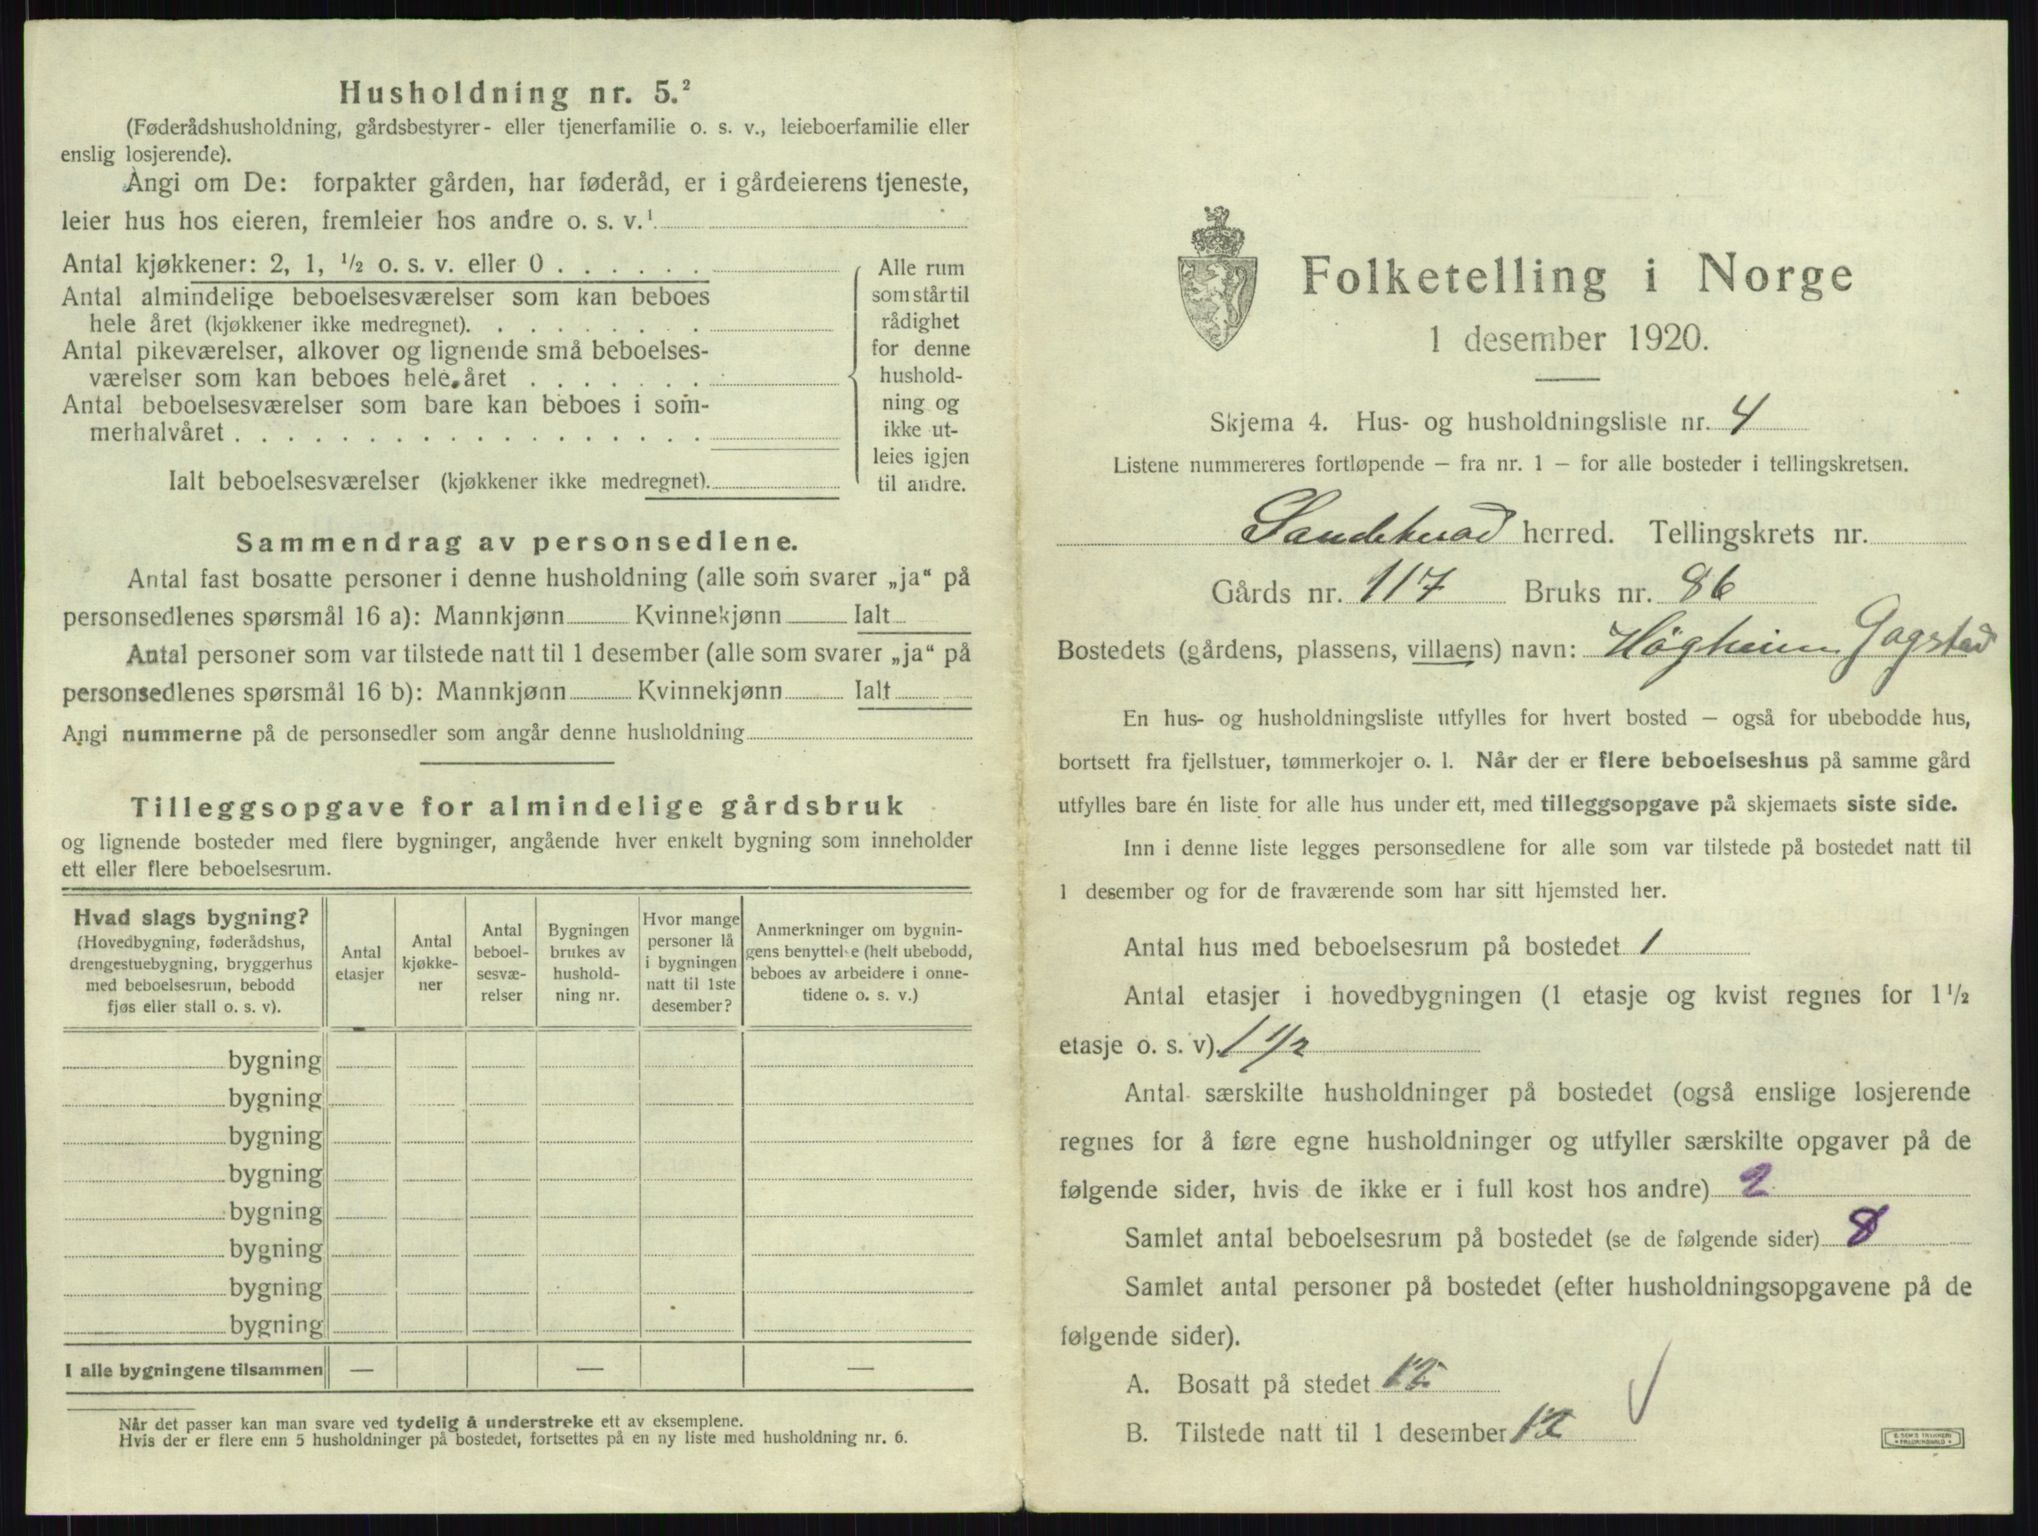 Husholdning nr. 5.²
(Føderådshusholdning, gårdsbestyrer- eller tjenerfamilie o. s. v., leieboerfamilie eller
enslig losjerende).
Angi om De: forpakter gården, har føderåd, er i gårdeierens tjeneste,
leier hus hos eieren, fremleier hos andre o. s. v.¹
Antal kjøkkener: 2, 1, ½ o. s. v. eller 0 . . . . . .
Antal almindelige beboelsesværelser som kan beboes
hele året (kjøkkener ikke medregnet). . . . . . . . .
Antal pikeværelser, alkover og lignende små beboelses-
værelser som kan beboes hele året . . . . . . .
Antal beboelsesværelser som bare kan beboes i som-
merhalvåret . . . . . . . . . . . . . . . . . .
Ialt beboelsesværelser (kjøkkener ikke medregnet).
Alle rum
som står til
rådighet
for denne
hushold-
ning og
ikke ut-
leies igjen
til andre.
Sammendrag av personsedlene.
Antal fast bosatte personer i denne husholdning (alle som svarer „ja“ på
personsedlenes spørsmål 16 a): Mannkjønn Kvinnekjønn Ialt
Antal personer som var tilstede natt til 1 desember (alle som svarer „ja“ på
personsedlenes spørsmål 16 b): Mannkjønn Kvinnekjønn Ialt
Angi nummerne på de personsedler som angår denne husholdning
Tilleggsopgave for almindelige gårdsbruk
og lignende bosteder med flere bygninger, angående hver enkelt bygning som inneholder
ett eller flere beboelsesrum.
Hvad slags bygning?
(Hovedbygning, føderådshus,
drengestuebygning, bryggerhus
med beboelsesrum, bebodd
fjøs eller stall o. s. v).
Antal
etasjer
Antal
kjøkke-
ner
Antal
beboel-
sesvæ-
relser
Bygningen
brukes av
hushold-
ning nr.
Hvor mange
personer lå
i bygningen
natt til 1ste
desember?
Anmerkninger om bygnin-
gens benyttelse (helt ubebodd,
beboes av arbeidere i onne-
tidene o. s. v.)
bygning
bygning
bygning
bygning
bygning
bygning
bygning
bygning
I alle bygningene tilsammen — — —
Når det passer kan man svare ved tydelig å understreke ett av eksemplene.
Hvis der er flere enn 5 husholdninger på bostedet, fortsettes på en ny liste med husholdning nr. 6.
Folketelling i Norge
1 desember 1920.
Skjema 4. Hus- og husholdningsliste nr. 4
Listene nummereres fortløpende – fra nr. 1 – for alle bosteder i tellingskretsen.
Sandeherad herred. Tellingskrets nr.
Gårds nr. 117 Bruks nr. 86
Bostedets (gårdens, plassens, villaens) navn: Høgheim Gogstad
En hus- og husholdningsliste utfylles for hvert bosted – også for ubebodde hus,
bortsett fra fjellstuer, tømmerkojer o. l. Når der er flere beboelseshus på samme gård
utfylles bare én liste for alle hus under ett, med tilleggsopgave på skjemaets siste side.
Inn i denne liste legges personsedlene for alle som var tilstede på bostedet natt til
1 desember og for de fraværende som har sitt hjemsted her.
Antal hus med beboelsesrum på bostedet 1
Antal etasjer i hovedbygningen (1 etasje og kvist regnes for 1½
etasje o. s. v). 1 1/2
Antal særskilte husholdninger på bostedet (også enslige losjerende
regnes for å føre egne husholdninger og utfyller særskilte opgaver på de
følgende sider, hvis de ikke er i full kost hos andre) 2
Samlet antal beboelsesrum på bostedet (se de følgende sider) 8
Samlet antal personer på bostedet (efter husholdningsopgavene på de
følgende sider).
A. Bosatt på stedet 12
B. Tilstede natt til 1 desember 12